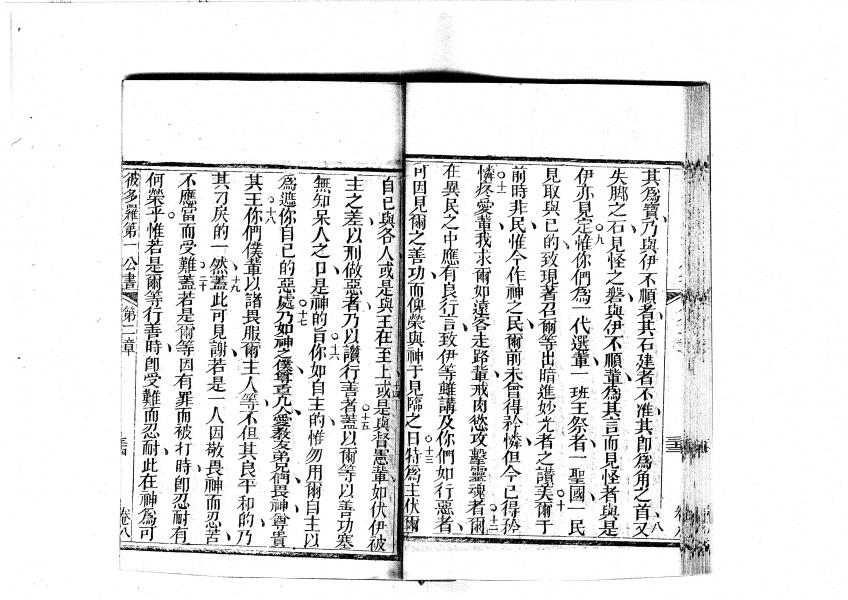 其為寶乃與伊不順者其石建者不准其即為角之首又八
失脚之石見怪之磐與伊不順輩為其言而見怪者與是
伊亦見定○九惟你們為一代選輩一班王祭者一聖國一民
見取與己的致現著召爾等出暗進妙光者之讚美○十爾于
前時非民惟今作神之民爾前未曾得矜憐但今已得矜
憐○十一疼愛輩我求爾如遠客走路輩戒肉慾攻擊靈魂者○十二爾
在異民之中應有良行言致伊等雖講及你們如行惡者
可因見爾之善功而俾榮與神于見臨之日○十三特為主伏爾
自己與各人或是與王在至上○十四或是與督憲輩如伏伊被
主之差以刑做惡者乃以讚行善者○十五蓋以爾等以善功塞
無知呆人之口是神的旨○十六你如自主的惟勿用爾自主以
為遮你自己的惡處乃如神之僕○十七尊重凡人愛教友弟兄們畏神尊貴
其王○十八你們僕輩以諸畏服爾主人等不但其良平和的乃
其刁戾的一然○十九蓋此可見謝若是一人因敬畏神而忍苦
不應當而受難○二十蓋若是爾等因有罪而被打時即忍耐有
何榮乎○惟若是爾等行善時即受難而忍耐此在神為可
彼多羅第一公書 第二章 三四 卷八